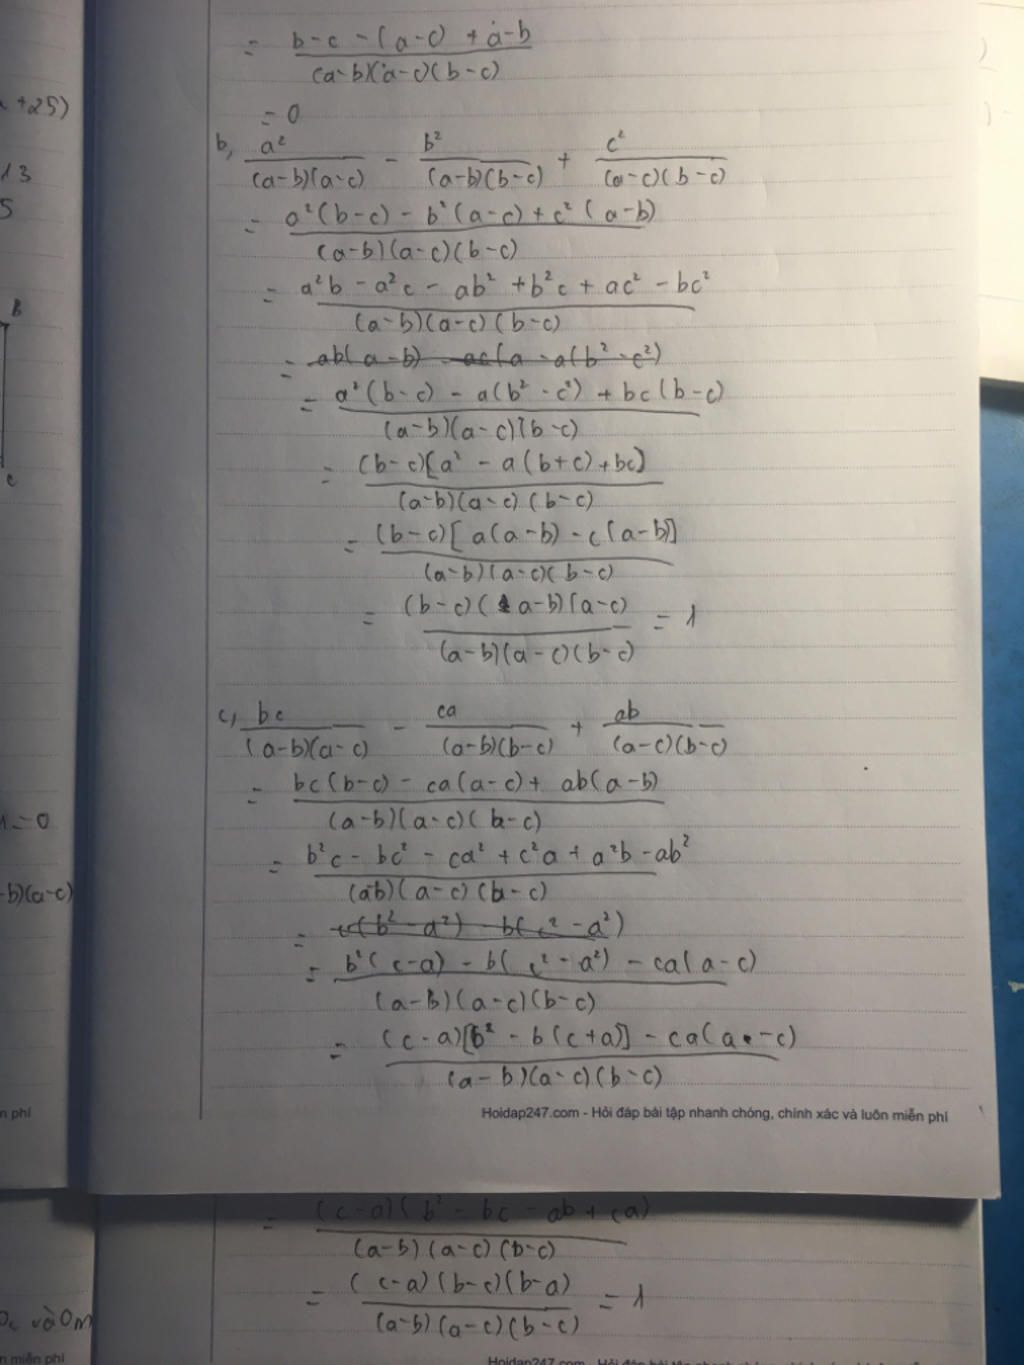 = b-c-(a-c)+a-b / (a-b)(a-c)(b-c)
+25)
= 0
b, a² / (a-b)(a-c) - b² / (a-b)(b-c) + c² / (a-c)(b-c)
13
5
= a²(b-c) - b²(a-c) + c²(a-b) / (a-b)(a-c)(b-c)
= a²b - a²c - ab² + b²c + ac² - bc² / (a-b)(a-c)(b-c)
B
= ab(a-b) - ac(a - a(b²-c²)
= a²(b-c) - a(b²-c²) + bc(b-c) / (a-b)(a-c)(b-c)
= (b-c)[a² - a(b+c) + bc] / (a-b)(a-c)(b-c)
c
= (b-c)[a(a-b) - c(a-b)] / (a-b)(a-c)(b-c)
= (b-c)(a-b)(a-c) / (a-b)(a-c)(b-c) = 1
c, bc / (a-b)(a-c) - ca / (a-b)(b-c) + ab / (a-c)(b-c)
= bc(b-c) - ca(a-c) + ab(a-b) / (a-b)(a-c)(b-c)
=0
= b²c - bc² - ca² + c²a + a²b - ab² / (a-b)(a-c)(b-c)
-b)(a-c)
= c(b²-a²) - b(c²-a²)
= b²(c-a) - b(c²-a²) - ca(a-c) / (a-b)(a-c)(b-c)
= (c-a)[b² - b(c+a)] - ca(a-c) / (a-b)(a-c)(b-c)
n phí
Hoidap247.com - Hỏi đáp bài tập nhanh chóng, chính xác và luôn miễn phí
= (c-a)(b² - bc - ab + ca) / (a-b)(a-c)(b-c)
= (c-a)(b-c)(b-a) / (a-b)(a-c)(b-c) = 1
và Om
n miễn phí